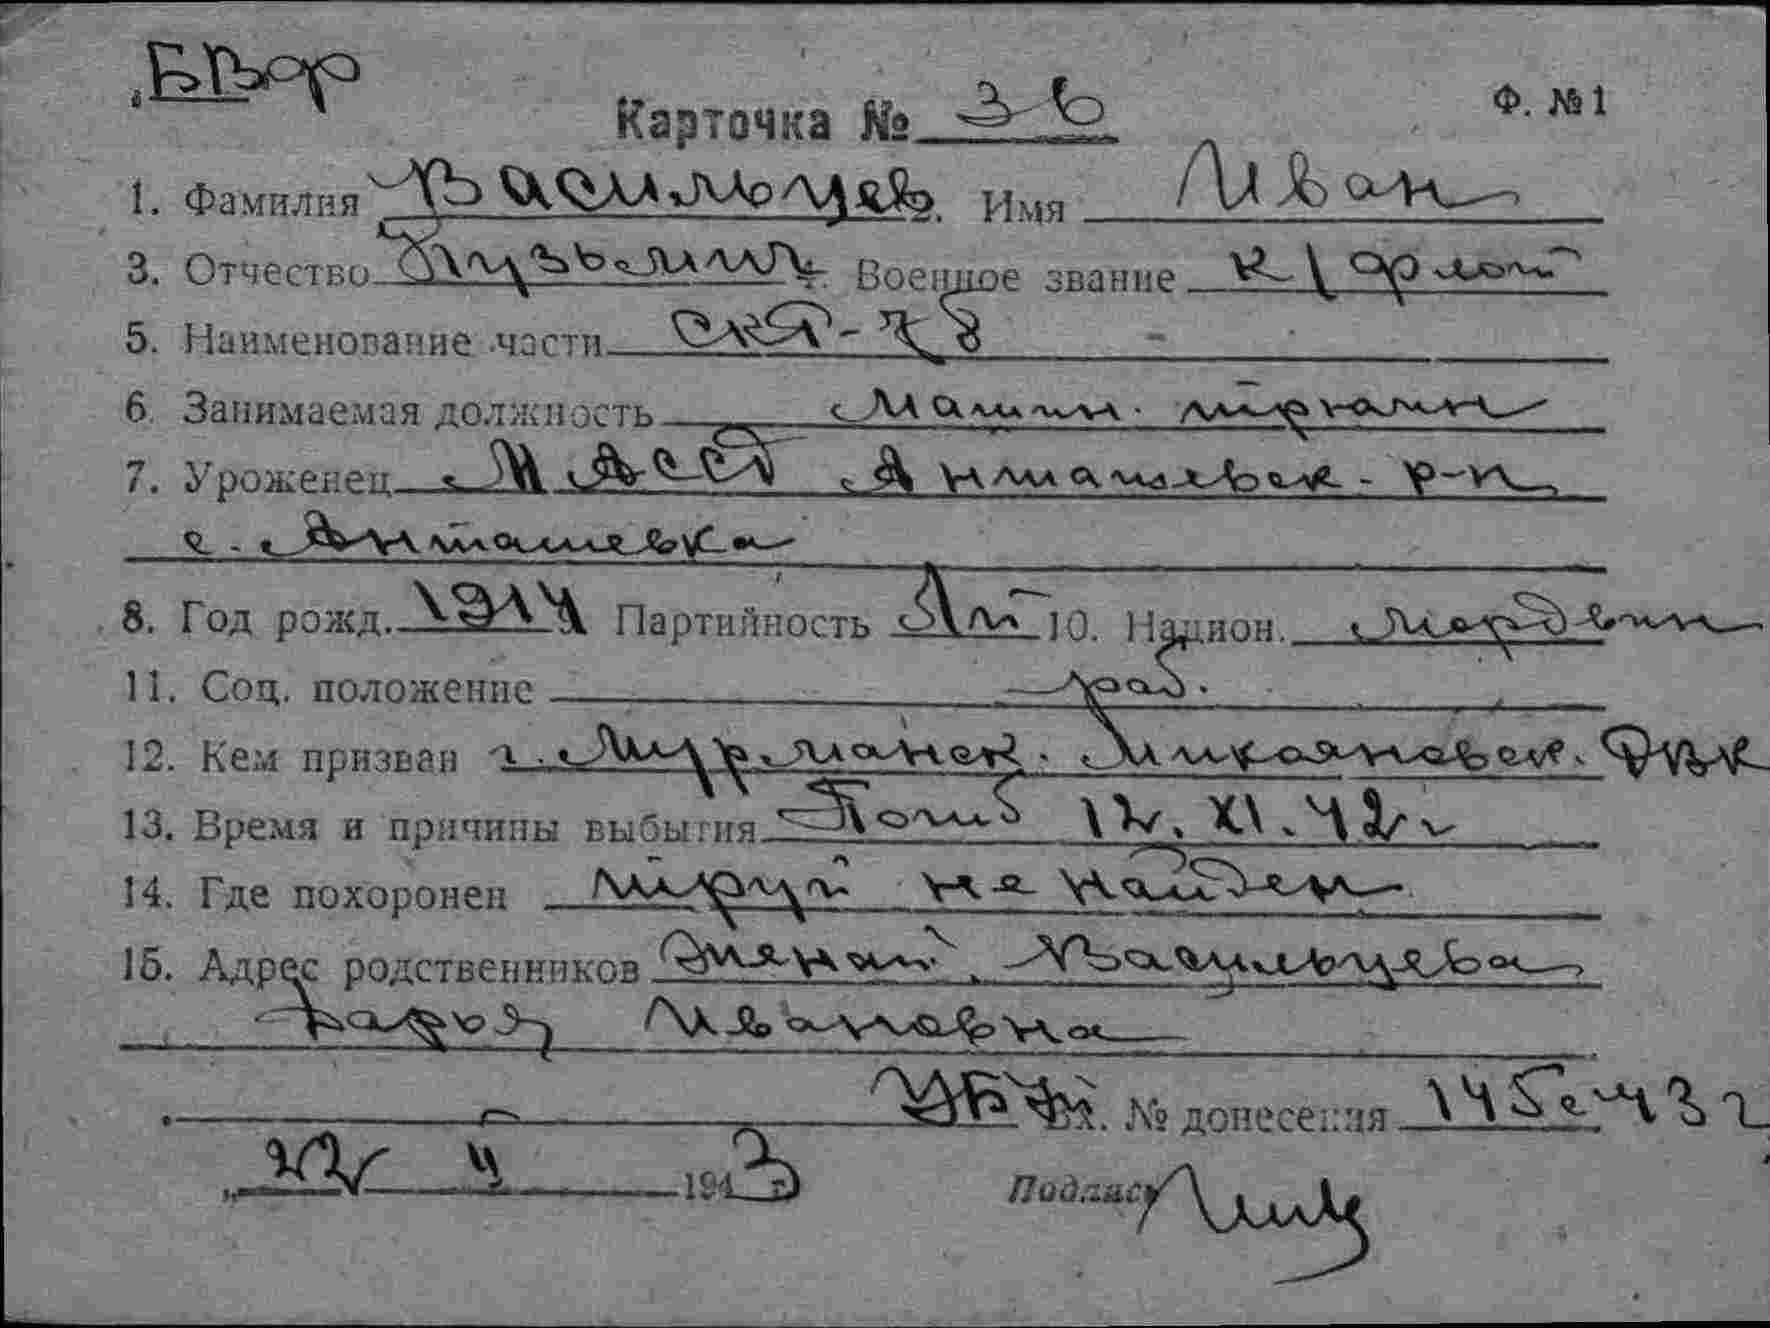 Карточка № 36 Ф. № 1
1. Фамилия Васильцев. Имя Иван
3. Отчество Кузьмич. Военное звание к/флот
5. Наименование части СКР-78
6. Занимаемая должность Машин. трюмн
7. Уроженец МАССР Анташевск. р-н,
с. Анташевка
8. Год рожд. 1914 Партийность 10. Национ. мордвин
11. Соц. положение раб.
12. Кем призван г. Мурманск. Микояновск. РВК
13. Время и причины выбытия Погиб 12. XI. 42 г
14. Где похоронен труп не найден
15. Адрес родственников Васильцева
Ивановна
Вх. № донесения 145с-43 г
22 4 1943 г.
Подпись